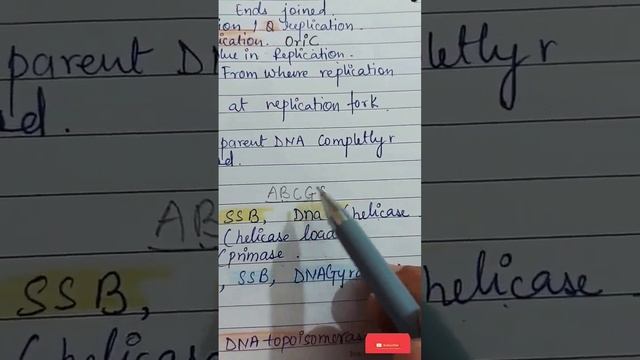 Ends joined
ion / Q replication
ication. OriC
ue in Replication.
From where replication
at replication fork
parent DNA Completly r
d.
ABCGS
SSB, Dna (helicase
(helicase load
(primase.
, SSB, DNAGyra
DNA topoisomeras
parent D
pletly r
d.
AB
SSB,
helicase
Subscribe